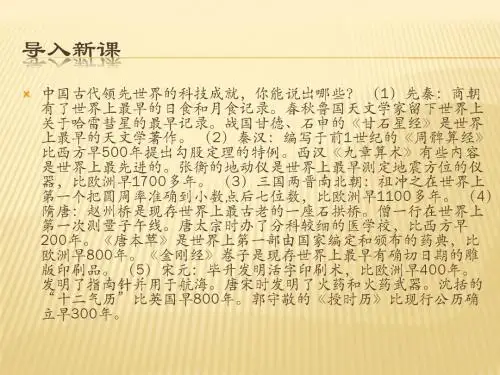 导入新课
中国古代领先世界的科技成就，你能说出哪些？（1）先秦：商朝
有了世界上最早的日食和月食记录。春秋鲁国天文学家留下世界上
关于哈雷彗星的最早记录。战国甘德、石申的《甘石星经》是世界
上最早的天文学著作。（2）秦汉：编写于前1世纪的《周髀算经》
比西方早500年提出勾股定理的特例。西汉《九章算术》有些内容
是世界上最先进的。张衡的地动仪是世界上最早测定地震方位的仪
器，比欧洲早1700多年。（3）三国两晋南北朝：祖冲之在世界上
第一个把圆周率准确到小数点后七位数，比欧洲早1100多年。（4）
隋唐：赵州桥是现存世界上最古老的一座石拱桥。僧一行在世界上
第一次测量子午线。唐太宗时办了分科较细的医学校，比西方早
200年。《唐本草》是世界上第一部由国家编定和颁布的药典，比
欧洲早800年。《金刚经》卷子是现存世界上最早有确切日期的雕
版印刷品。（5）宋元：毕升发明活字印刷术，比欧洲早400年。
发明了指南针并用于航海。唐宋时发明了火药和火药武器。沈括的
“十二气历”比英国早800年。郭守敬的《授时历》比现行公历确
立早300年。